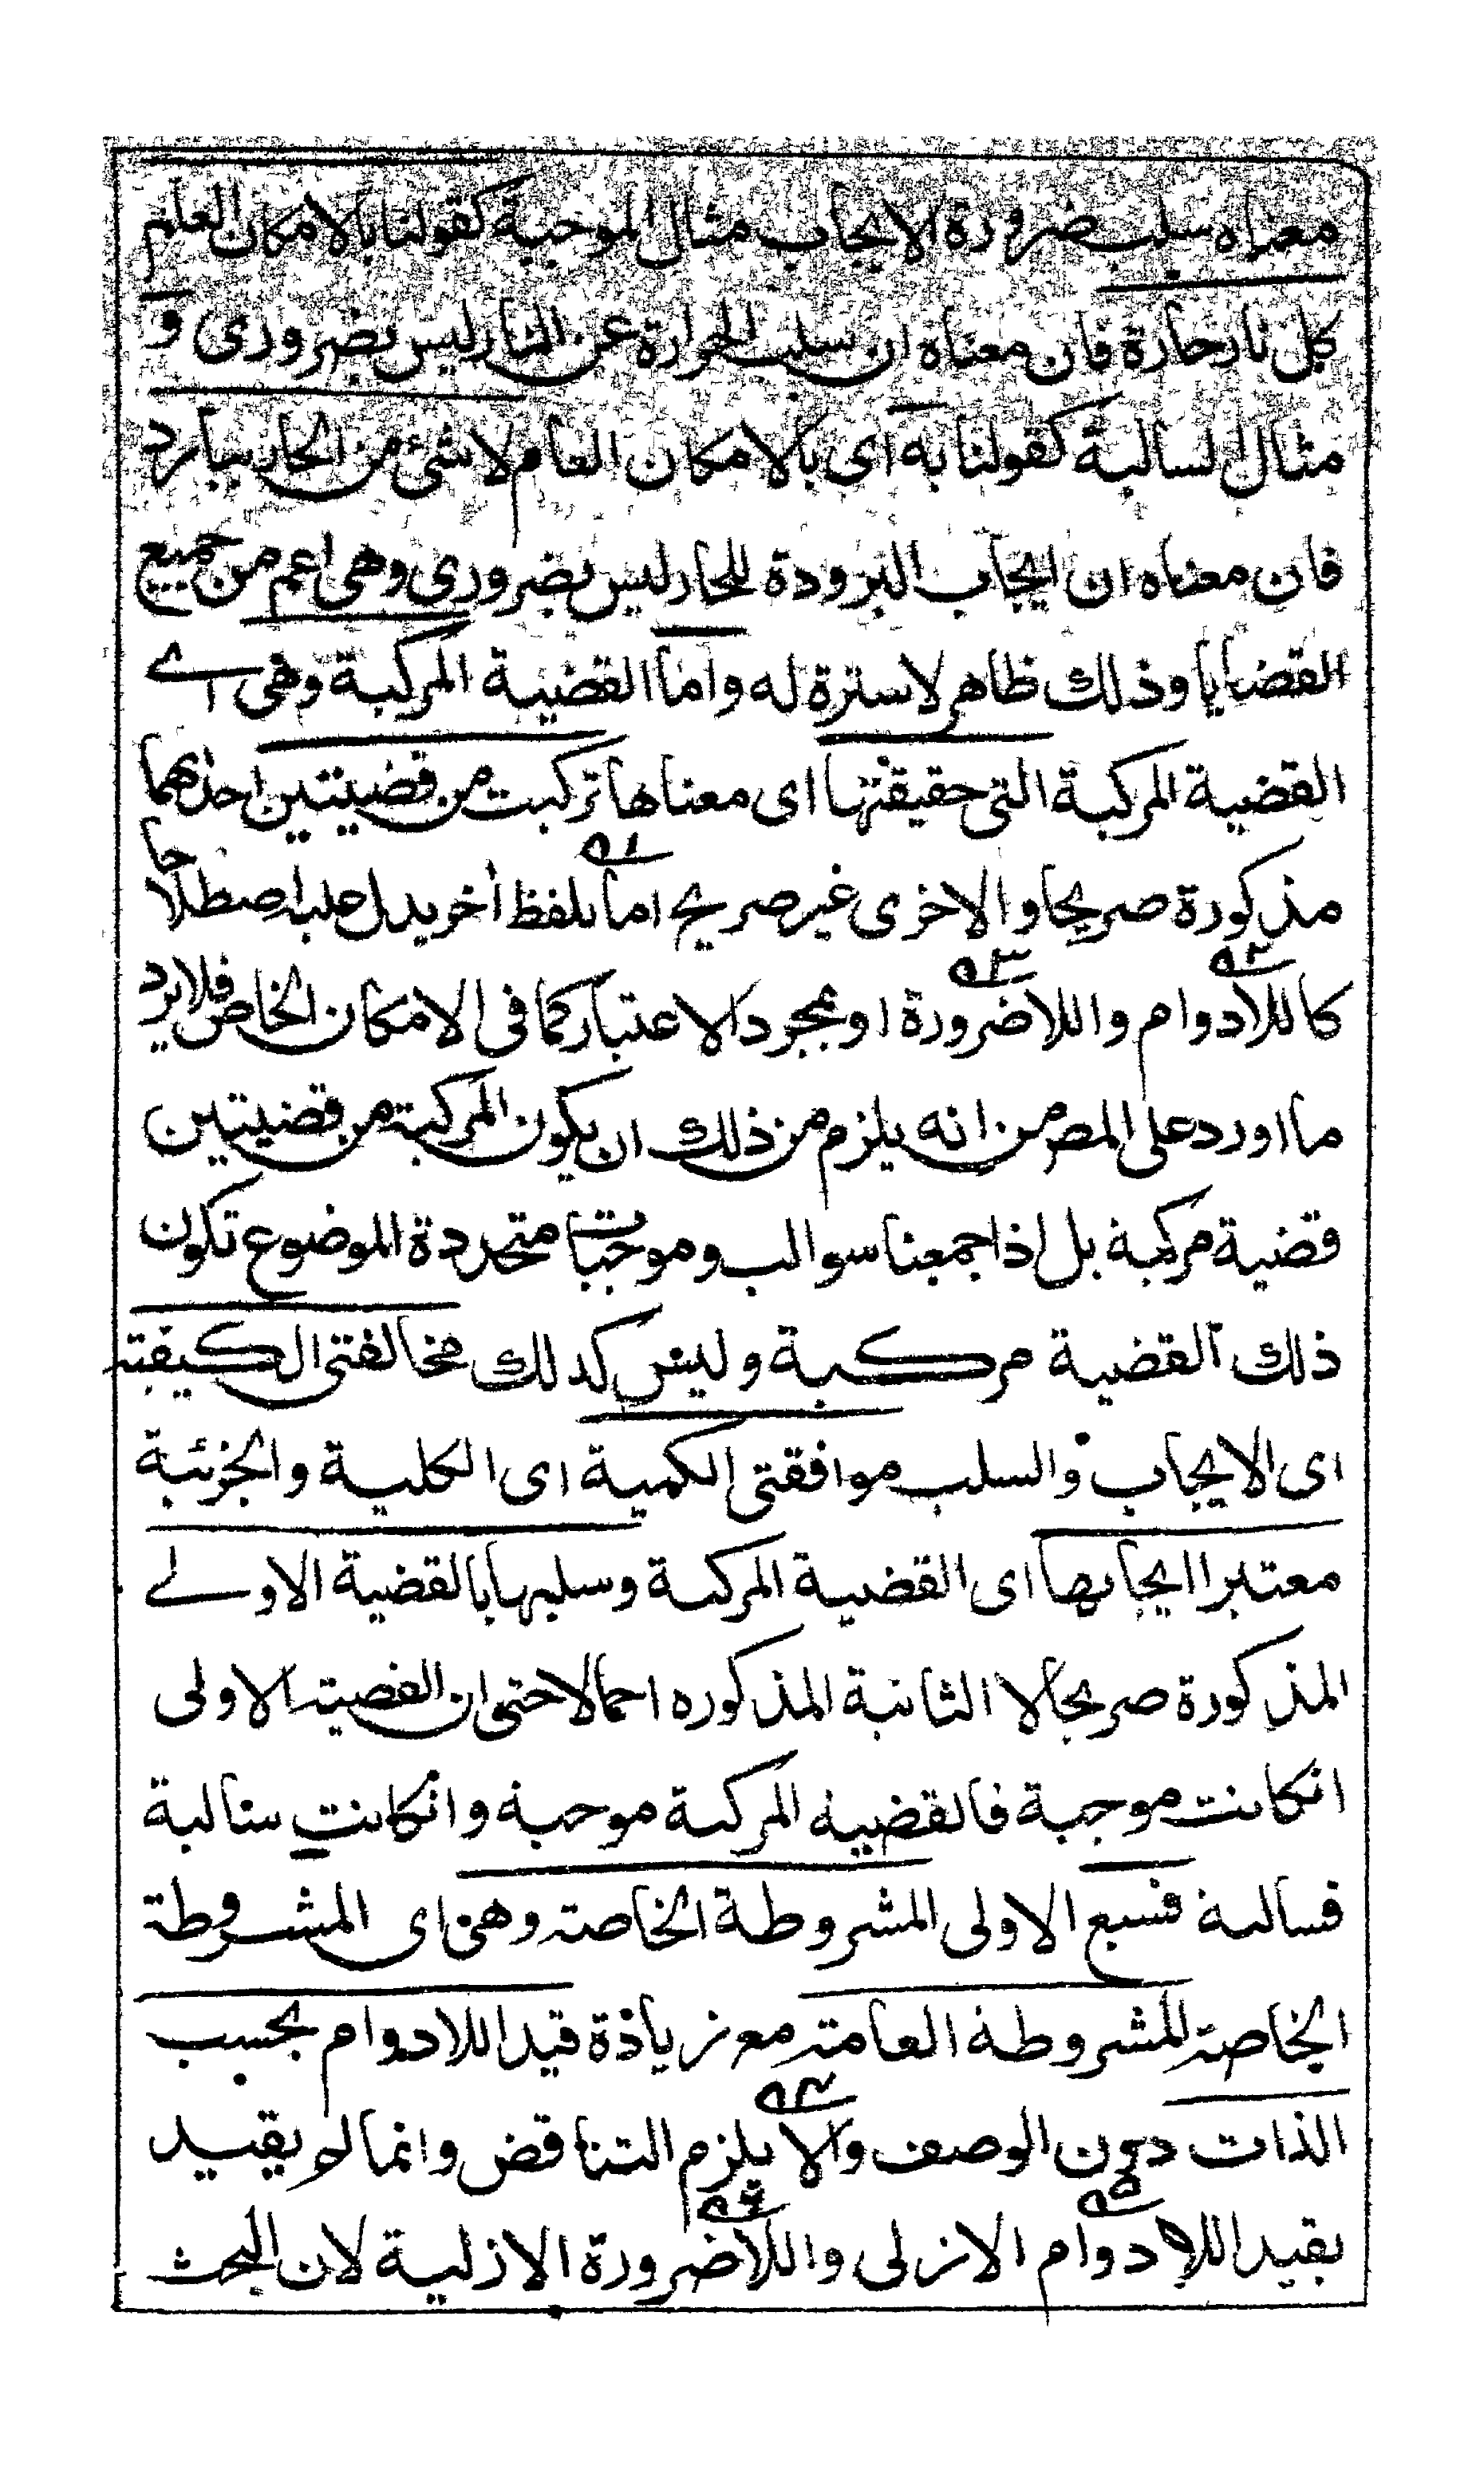 معناه سلب ضرورة الايجاب مثال الموجبة كقولنا بالامكان العام
كل نار حارة فان معناه ان سلب الحرارة عن النار ليس بضروري و
مثال السالبة كقولنا به اى بالامكان العام لا شئ من الحار ببارد
فان معناه ان ايجاب البرودة للحار ليس بضروري وهى اعم من جميع
القضايا وذلك ظاهر لا سترة له واما القضية المركبة وهى اے
القضية المركبة التى حقيقتها اى معناها تركبت من قضيتين احدهما
مذكورة صريحا والاخرى غير صريح اما بلفظ أخر يدل عليه اصطلاحا
٩١
كاللادوام واللاضرورة او بمجرد الاعتبار كما فى الامكان الخاص فلا يرد
٩٢ ٩٣
ما اورد على المصـ من انه يلزم من ذلك ان يكون المركبة من قضيتين
قضية مركبة بل اذا جمعنا سوالب وموجبات متحدة الموضوع تكون
ذلك القضية مركبة وليس كذلك مخالفتى الكيفية
اى الايجاب والسلب موافقتى الكمية اى الكلية والجزئية
معتبرا ايجابها اى القضية المركبة وسلبها بالقضية الاولے
المذكورة صريحا لا الثانية المذكوره اجمالا حتى ان القضية الاولى
انكانت موجبة فالقضية المركبة موجبة وانكانت سالبة
فسالبة فسبع الاولى المشروطة الخاصة وهى اى المشروطة
الخاصة المشروطة العامة مع زيادة قيد اللادوام بحسب
الذات دون الوصف والا يلزم التناقض وانما لم يقيد
٩٤
بقيد اللادوام الازلى واللاضرورة الازلية لان البحث
٩٥ ٩٦